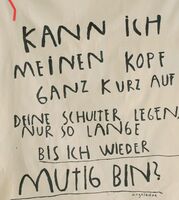 KANN ICH
MEINEN KOPF
GANZ KURZ AUF
DEINE SCHULTER LEGEN,
NUR SO LANGE
BIS ICH WIEDER
MUTIG BIN?